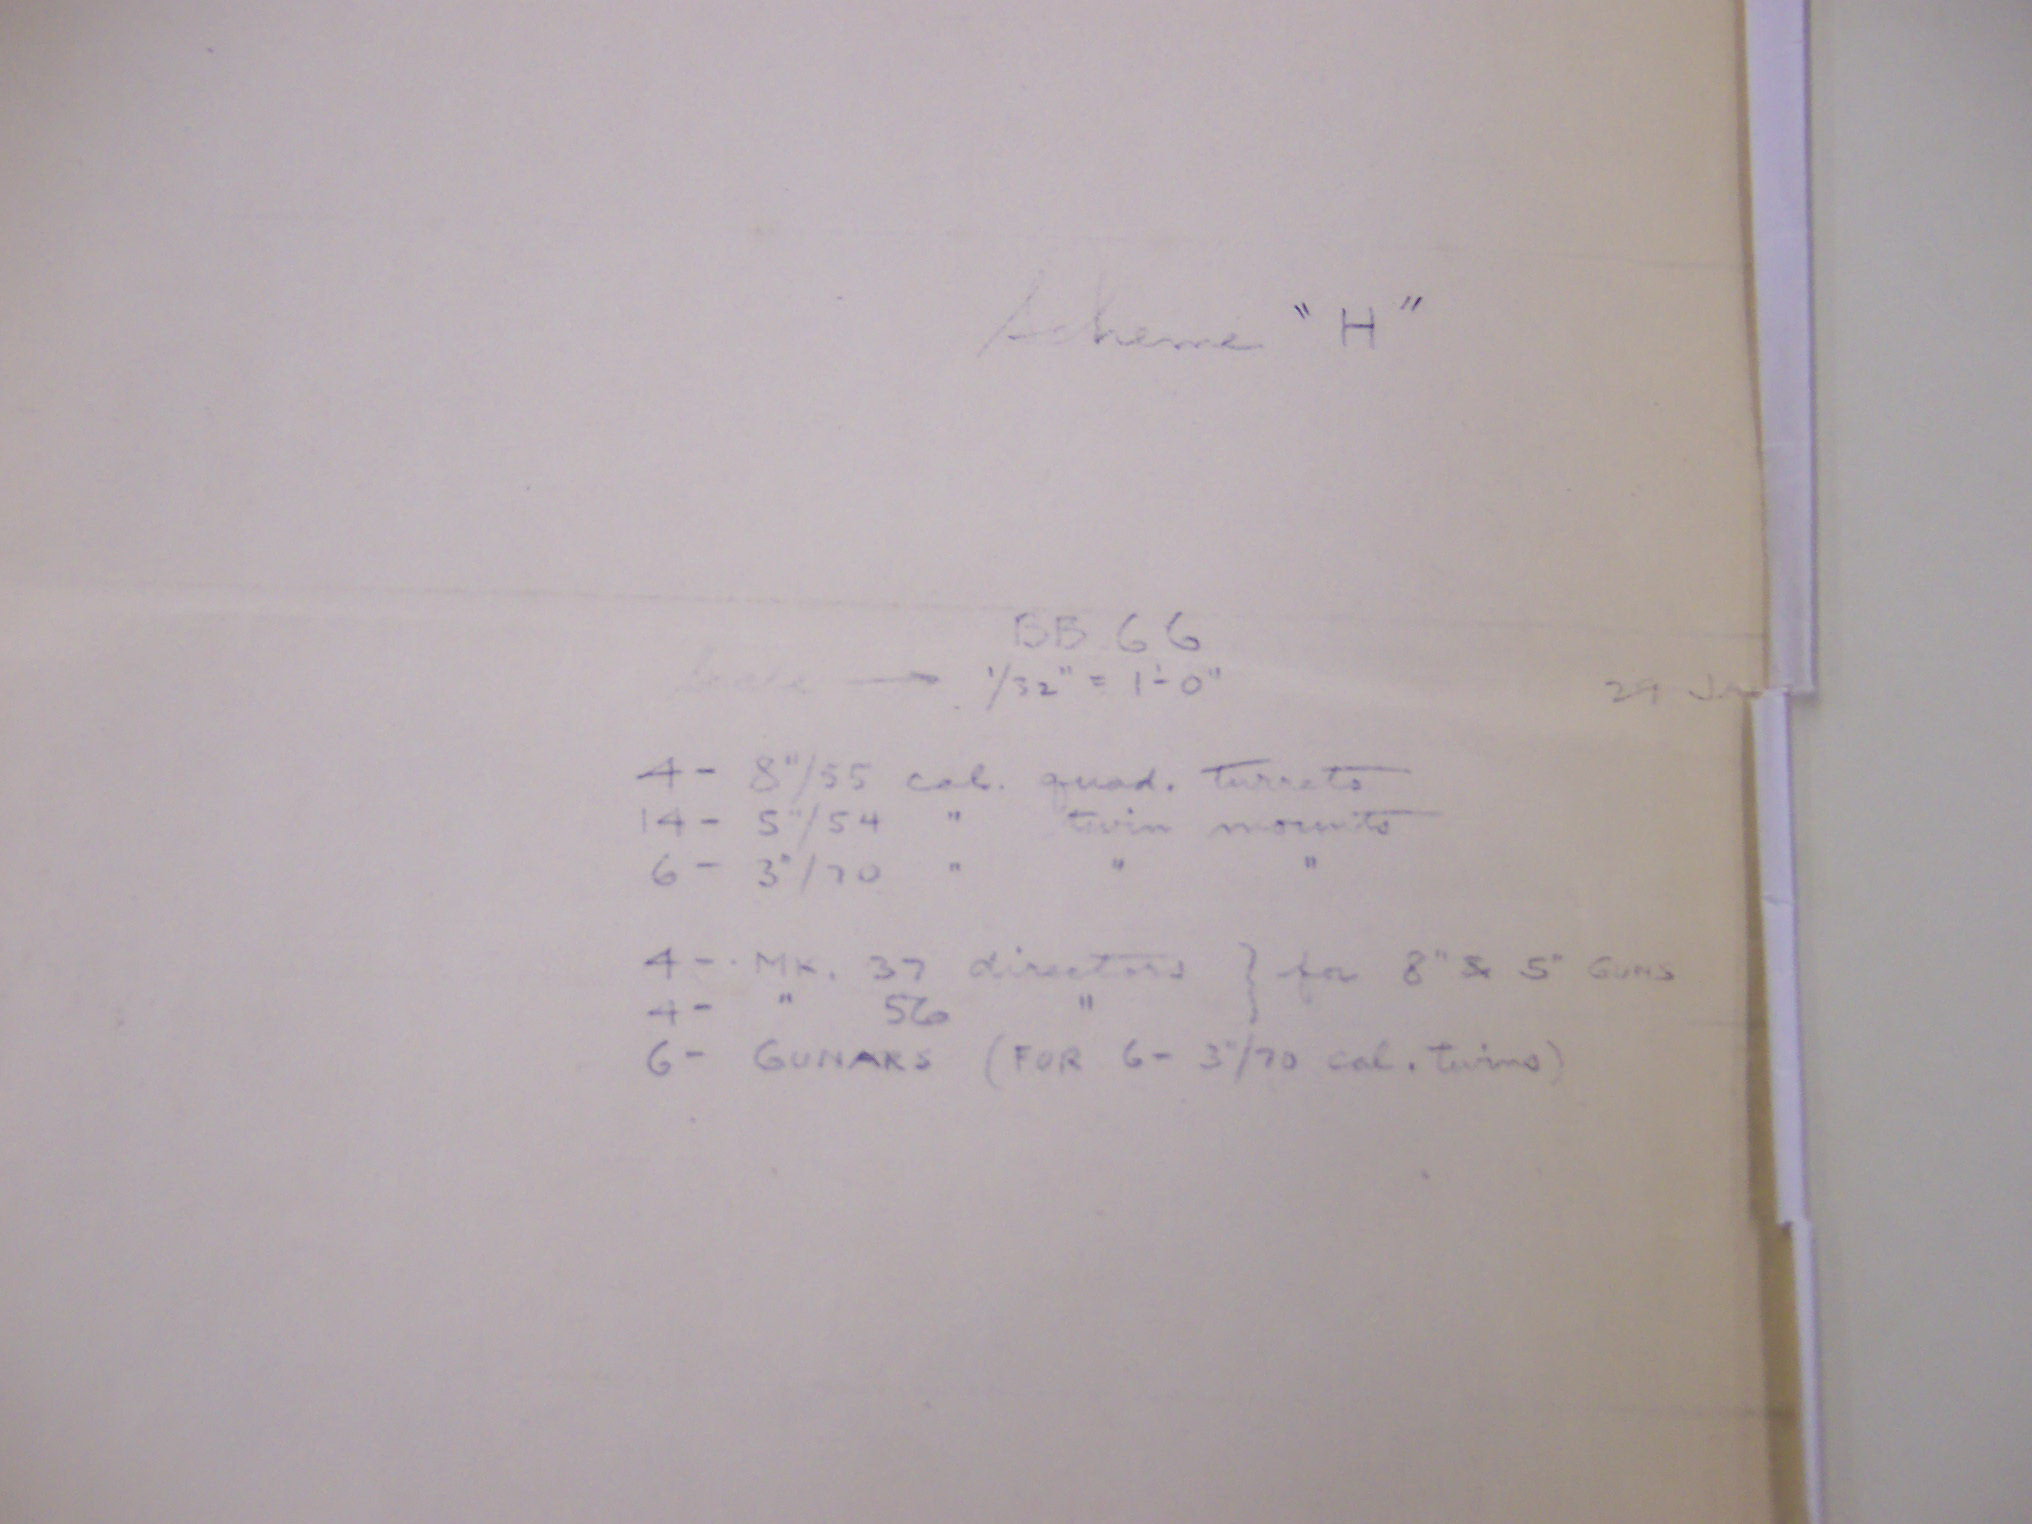 Scheme "H"
BB 66
Scale → 1/32" = 1'-0"
29
4 - 8"/55 cal. quad. turrets
14 - 5"/54 " twin mounts
6 - 3"/70 " " "
4 - Mk. 37 directors } for 8" & 5" GUNS
4 - " 56 "
6 - GUNARS (FOR 6 - 3"/70 cal. twins)